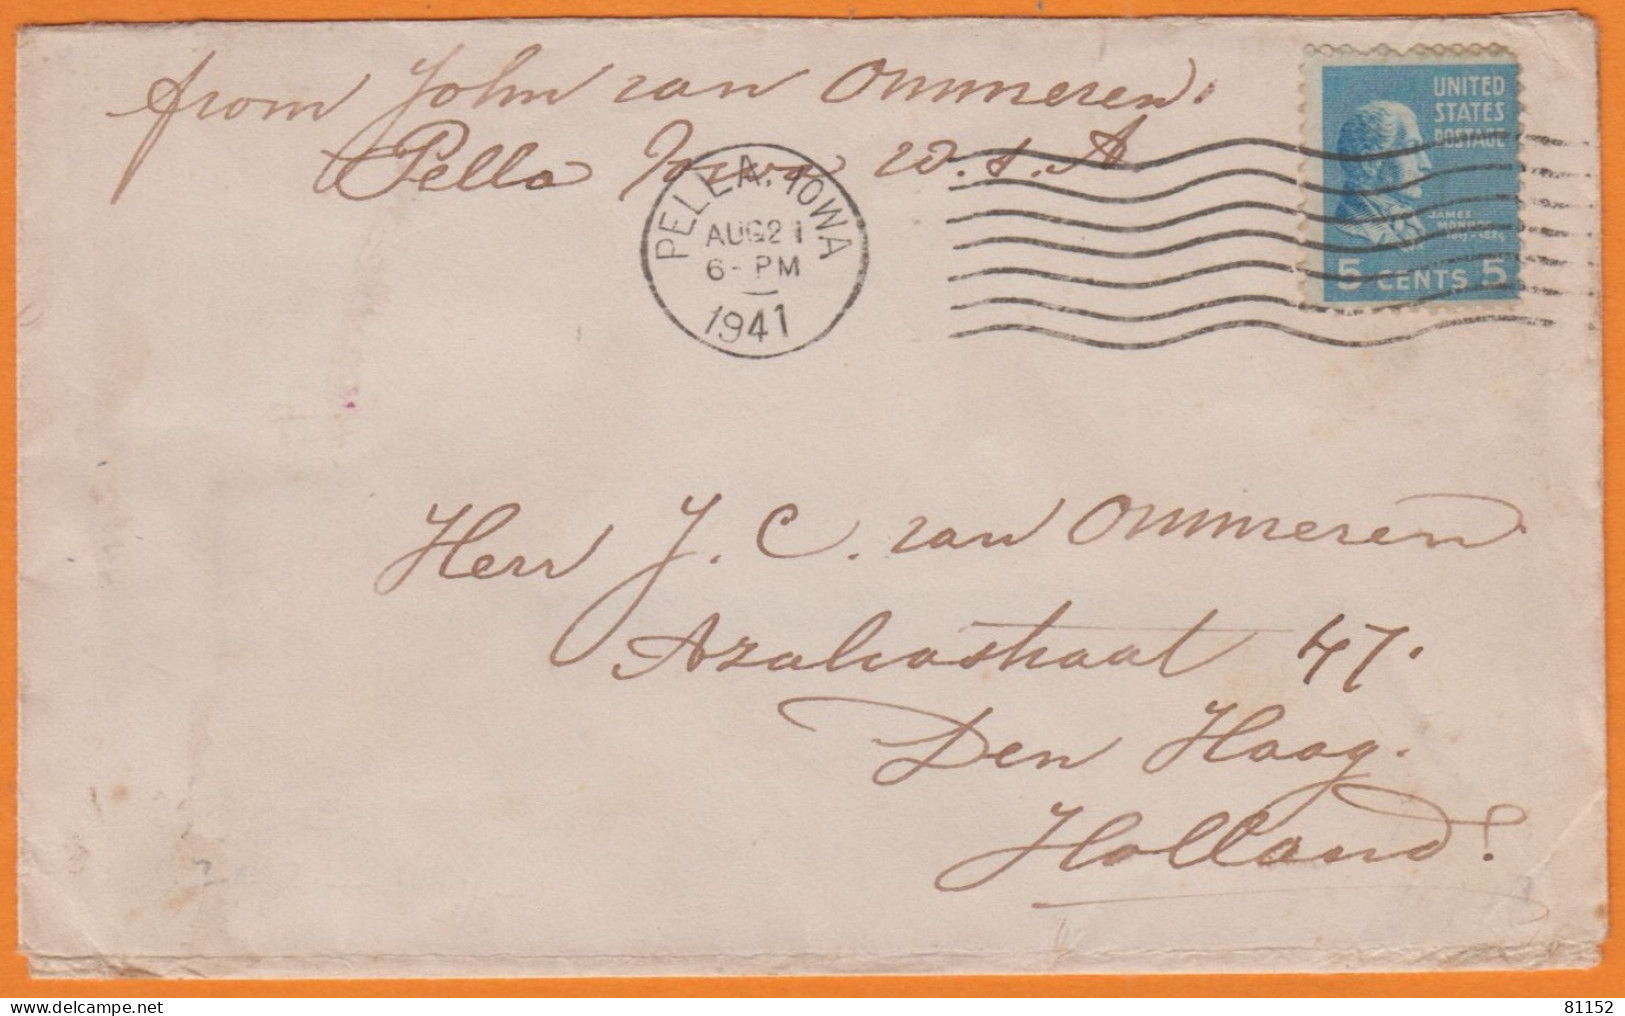 from John van Ommeren.
Pella Iowa U.S.A
PELLA, IOWA
AUG 21
6-PM
1941
UNITED
STATES
POSTAGE
JAMES
MONROE
1817-1825
5 CENTS 5
Herr J. C. van Ommeren
Azaleastraat 47.
Den Haag.
Holland!
81152